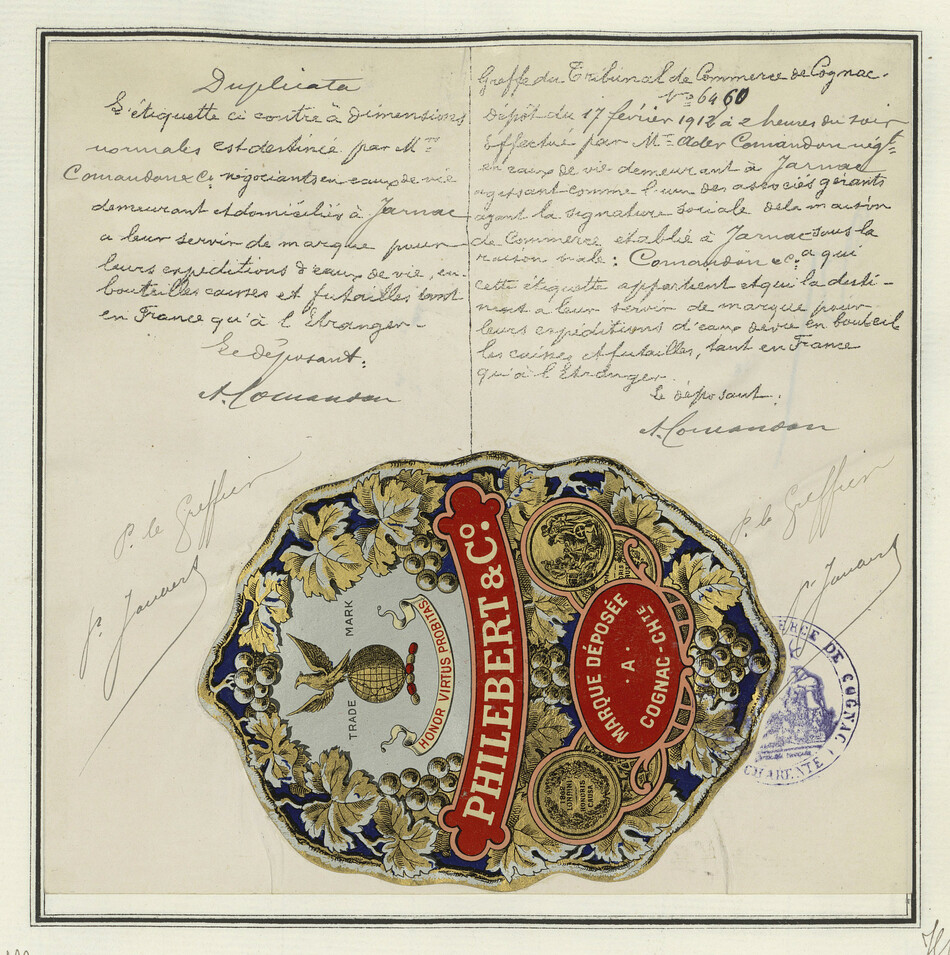 Duplicata
L'étiquette ci contre à dimensions
normales est destinée par Mrs
Comandon & Co négociants en eaux de vie
demeurant et domiciliés à Jarnac
a leur servir de marque pour
leurs expéditions d'eaux de vie, en
bouteilles caisses et futailles tant
en France qu'à l'Etranger -
Le déposant:
A. Comandon
P. le Greffier
Greffe du Tribunal de Commerce de Cognac.
No 6460
Dépôt du 17 février 1912 à 2 heures du soir
Effectué par Mr Ader Comandon négt-
en eaux de vie demeurant à Jarnac
agissant comme l'un des associés gérants
ayant la signature sociale de la maison
de Commerce établie à Jarnac sous la
raison sociale: Comandon & Co, a qui
cette étiquette appartient et qui la desti-
nent a leur servir de marque pour
leurs expéditions d'eaux de vie en bouteil
les caisses et futailles, tant en France
qu'à l'Etranger
Le déposant.
A. Comandon
P. le Greffier
TRADE MARK
HONOR VIRTUS PROBITAS
PHILEBERT & Co.
MARQUE DÉPOSÉE
· A ·
COGNAC - CHTE
1862
LONDON
HONORIS
CAUSA
DE COGNAC
CHARENTE